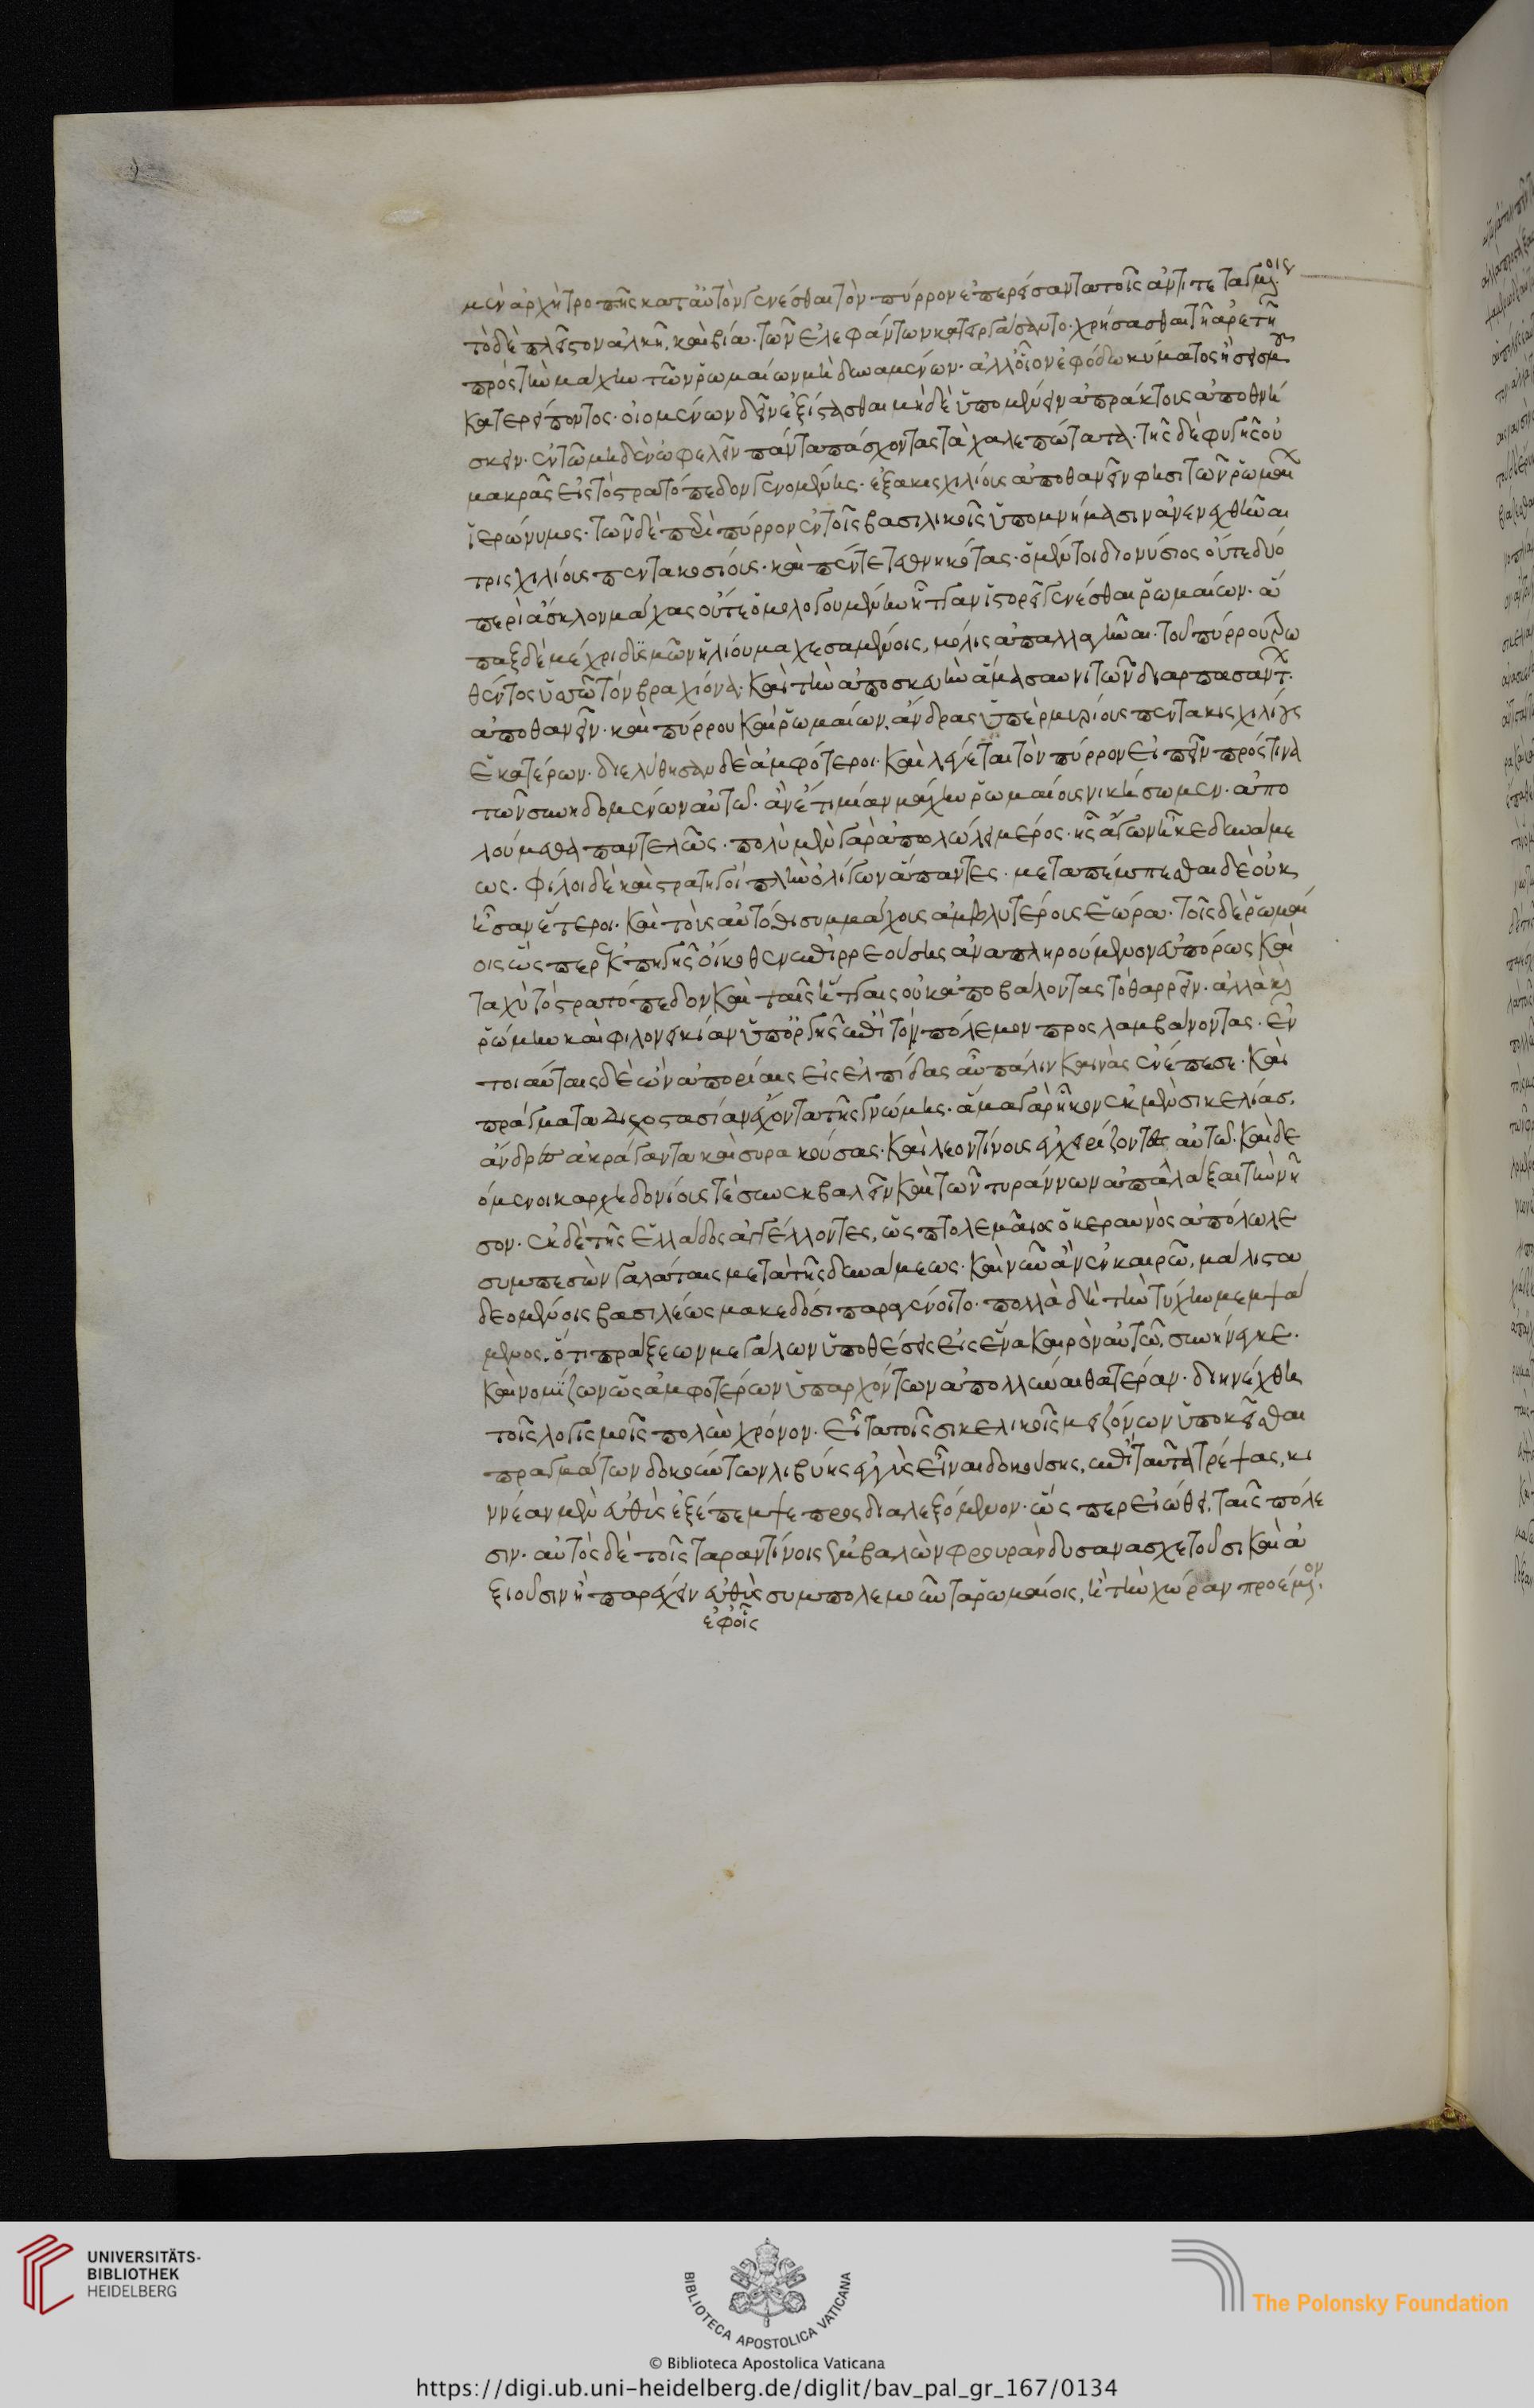 μὲν ἀρχὴ τροπῆς κατ' αὐτὸν γενέσθαι τὸν πύρρον ἐπερείσαντα τοῖς ἀντιτεταγμένοις
τὸ δὲ πλεῖστον ἀλκῆ. καὶ βία τῶν ἐλεφάντων κατειργάσαντο. χρήσασθαι τῆ ἀρετῆ
πρὸς τὴν μάχην τῶν ῥωμαίων μὴ δυναμένων. ἀλλ' οἷον ἐφόδω κύματος ἢ σεισμοῦ
κατερείποντος. οἰομένων δεῖν ἐξίστασθαι μὴ δὲ ὑπομένειν ἀπράκτους ἀποθνή
σκειν. ἐν τῶ μηδὲν ὠφελεῖν πάντα πάσχοντας τὰ χαλεπώτατα. τῆς δὲ φυγῆς οὐ
μακρᾶς εἰς τὸ στρατόπεδον γενομένης. ἑξακισχιλίους ἀποθανεῖν φησι τῶν ῥωμαίων
ἱερώνυμος. τῶν δὲ περὶ πύρρον ἐν τοῖς βασιλικοῖς ὑπομνήμασιν ἀνενεχθῆναι
τρισχιλίους πεντακοσίους. καὶ πέντε τεθνηκότας. ὁ μέντοι διονύσιος οὔτε δύο
περὶ ἄσκλον μάχας οὔτε ὁμολογουμένην ἧτταν ἱστορεῖ γενέσθαι ῥωμαίων. ἅ
παξ δὲ μέχρι δυσμῶν ἡλίου μαχεσαμένους, μόλις ἀπαλλαγῆναι. τοῦ πύρρου τρω
θέντος ὑσσῶ τὸν βραχίονα. καὶ τὴν ἀποσκευὴν ἅμα σαυνιτῶν διαρπασάντων.
ἀποθανεῖν. καὶ πύρρου καὶ ῥωμαίων. ἄνδρας ὑπὲρ μυρίους πεντακισχιλίους
ἑκατέρων. διελύθησαν δὲ ἀμφότεροι. καὶ λέγεται τὸν πύρρον εἰπεῖν πρός τινα
τῶν συνηδομένων αὐτῶ. ἂν ἔτι μίαν μάχην ῥωμαίους νικήσωμεν. ἀπο
λούμεθα παντελῶς. πολὺ μὲν γὰρ ἀπολώλει μέρος. ἧς ἄγων ἧκε δυνάμε
ως. φίλοι δὲ καὶ στρατηγοὶ πλὴν ὀλίγων ἅπαντες. μεταπέμπεσθαι δὲ οὐκ
ἦσαν ἕτεροι. καὶ τοὺς αὐτόθι συμμάχους ἀμβλυτέρους ἑώρα. τοῖς δὲ ῥωμαί
οις ὥσπερ ἐκ πηγῆς οἴκοθεν ἐπιρρεούσης ἀναπληρούμενον εὐπόρως καὶ
ταχὺ τὸ στρατόπεδον καὶ ταῖς ἥτταις οὐκ ἀποβάλοντας τὸ θαρρεῖν. ἀλλὰ καὶ
ῥώμην καὶ φιλονεικίαν ὑπ' ὀργῆς ἐπὶ τὸν πόλεμον προσλαμβάνοντας. ἐν
τοιαύταις δὲ ὢν ἀπορίαις εἰς ἐλπίδας αὖ πάλιν καινὰς ἐνέπεσε. καὶ
πράγματα διχοστασίαν ἔχοντα τῆς γνώμης. ἅμα γὰρ ἧκον ἐκ μὲν σικελίας,
ἄνδρες ἀκράγαντα καὶ συρακούσας. καὶ λεοντίνους ἐγχειρίζοντες αὐτῶ. καὶ δε
όμενοι καρχηδονίους τὲ συνεκβαλεῖν καὶ τῶν τυράννων ἀπαλλάξαι τὴν νῆ
σον. ἐκ δὲ τῆς ἑλλάδος ἀγγέλλοντες, ὡς πτολεμαῖος ὁ κεραυνὸς ἀπόλωλε
συμπεσὼν γαλάταις μετὰ τῆς δυνάμεως. καὶ νῦν ἂν ἐν καιρῶ, μάλιστα
δεομένοις βασιλέως μακεδόσι παραγένοιτο. πολλὰ δὴ τὴν τύχην μεμψά
μενος. ὅτι πράξεων μεγάλων ὑποθέσεις εἰς ἕνα καιρὸν αὐτῶ, συνήνεγκε.
καὶ νομίζων ὡς ἀμφοτέρων ὑπαρχόντων ἀπολλύναι θατέραν. διηνέχθη
τοῖς λογισμοῖς πολὺν χρόνον. εἶτα τοῖς σικελικοῖς μειζόνων ὑποκεῖσθαι
πραγμάτων δοκούντων λιβύης ἐγγὺς εἶναι δοκούσης, ἐπὶ ταῦτα τρέψας, κι
ννέαν μὲν εὐθὺς ἐξέπεμψε προσδιαλεξόμενον. ὥσπερ εἰώθει, ταῖς πόλε
σιν. αὐτὸς δὲ τοῖς ταραντίνοις ἐμβαλὼν φρουρὰν δυσανασχετοῦσι καὶ ἀ
ξιοῦσιν ἢ παρέχειν εὐθὺς συμπολεμοῦντα ῥωμαίοις, ἢ τὴν χώραν προέμενον.
ἐφ' οἷς
UNIVERSITÄTS-
BIBLIOTHEK
HEIDELBERG
BIBLIOTECA APOSTOLICA VATICANA
The Polonsky Foundation
© Biblioteca Apostolica Vaticana
https://digi.ub.uni-heidelberg.de/diglit/bav_pal_gr_167/0134